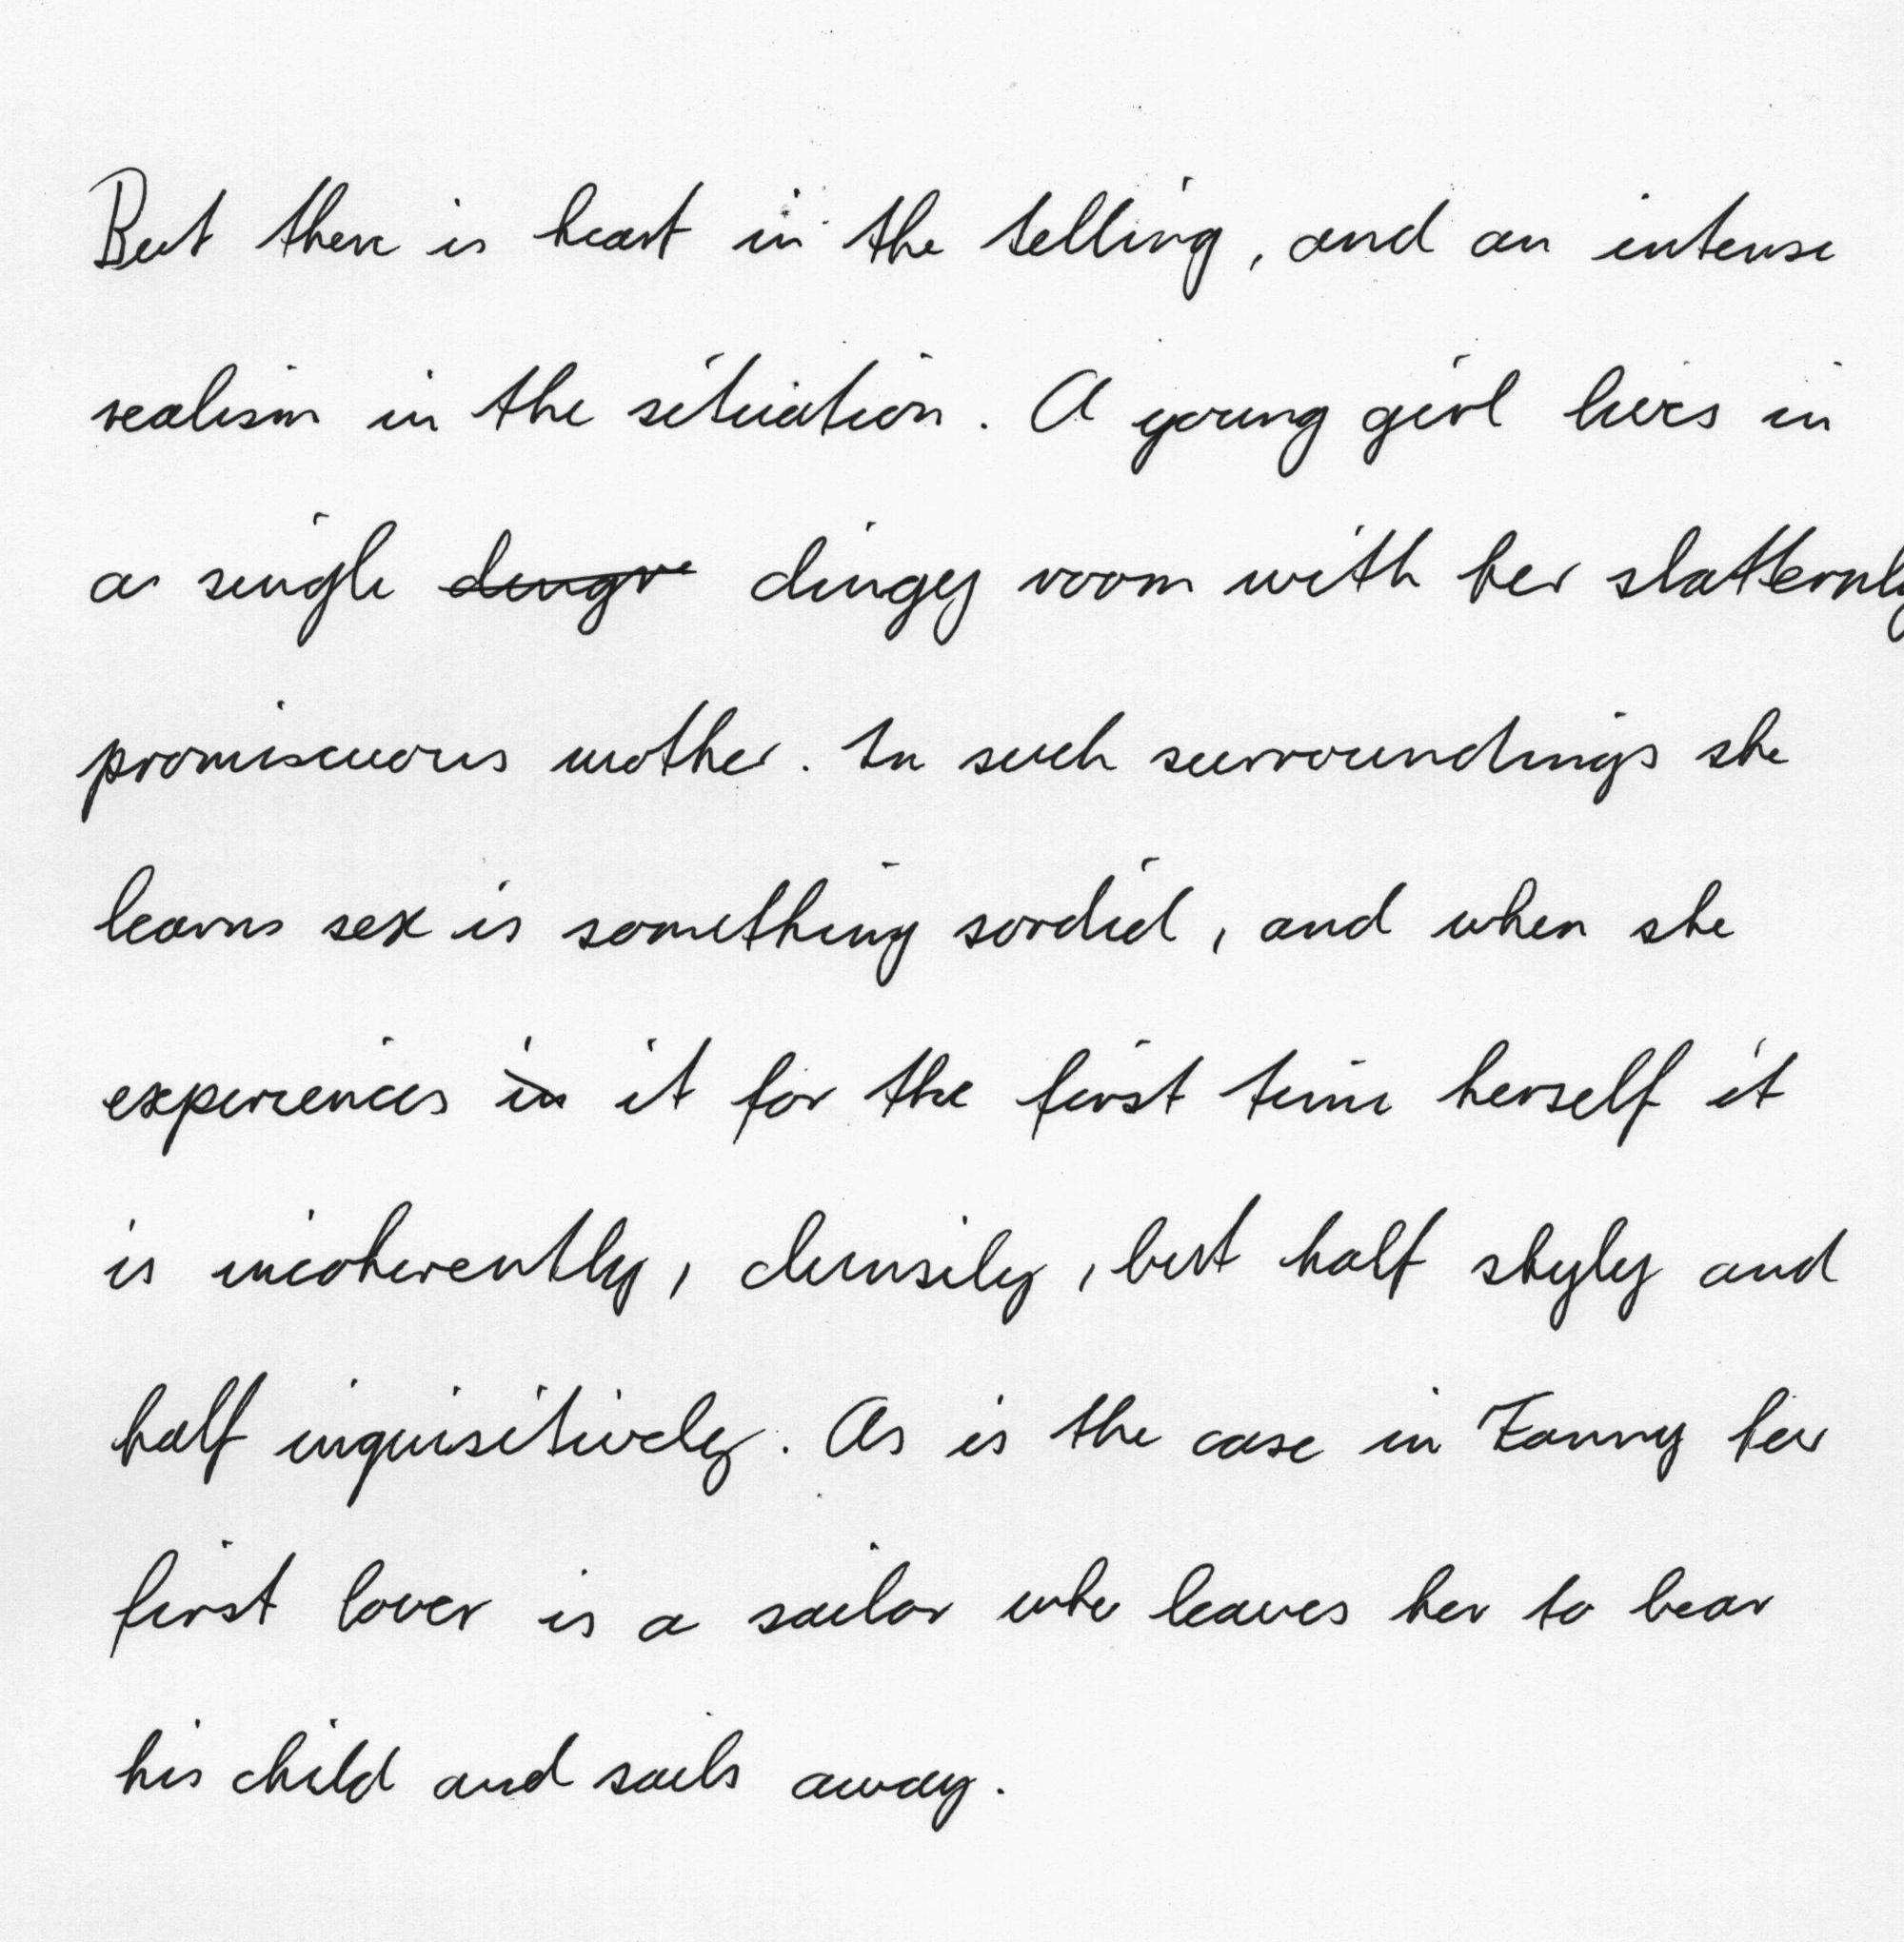 But there is heart in the telling, and an intense
realism in the situation. A young girl lives in
a single dingy room with her slatternly
promiscuous mother. In such surroundings she
learns sex is something sordid, and when she
experiences in it for the first time herself it
is incoherently, clumsily, but half shyly and
half inquisitively. As is the case in Fanny her
first lover is a sailor who leaves her to bear
his child and sails away.